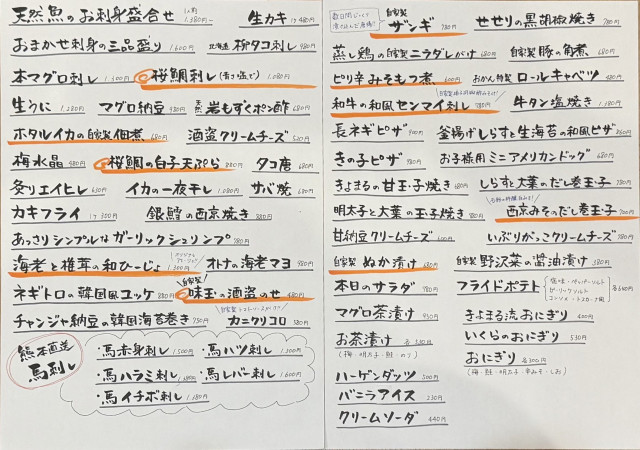 天然魚のお刺身盛合せ 1人前 1.380円~ 生カキ 1ケ 480円
おまかせ刺身の三品盛り 1.600円 北海道 柳タコ刺し 980円
本マグロ刺し 1.300円 桜鯛刺し(青さ塩で) 1.080円
生うに 1.280円 マグロ納豆 980円 岩もずくポン酢 680円
ホタルイカの自家製佃煮 680円 酒盗クリームチーズ 520円
梅水晶 980円 桜鯛の白子天ぷら 880円 タコ唐 680円
炙りエイヒレ 650円 イカの一夜干し 1.080円 サバ焼 680円
カキフライ 1ケ 300円 銀鱈の西京焼き 980円
あっさりシンプルなガーリックシュリンプ 780円
海老と椎茸の和ひーじょ 1.300円 オトナの海老マヨ 980円
ネギトロの韓国風ユッケ 880円 自家製 味玉の酒盗のせ 480円
チャンジャ納豆の韓国海苔巻き 750円 カニクリコロ 580円
熊本直送 馬刺し
・馬赤身刺し 1.500円 ・馬ハツ刺し 1.300円
・馬ハラミ刺し ・馬レバー刺し 1.600円
・馬イチボ刺し 1.780円
自家製 ザンギ 780円 せせりの黒胡椒焼き 780円
蒸し鶏の自家製ニラダレがけ 680円 自家製豚の角煮 680円
ピリ辛みそもつ煮 600円 おかん特製 ロールキャベツ 480円
和牛の和風センマイ刺し 780円 牛タン塩焼き 1.780円
長ネギピザ 900円 釜揚げしらすと生海苔の和風ピザ
きの子ピザ 980円 お子様用ミニアメリカンドッグ 680円
きよまるの甘玉子焼き 680円 しらすと大葉のだし巻玉子 780円
明太子と大葉の玉子焼き 980円 西京みそのだし巻玉子 700円
甘納豆クリームチーズ 600円 いぶりがっこクリームチーズ 780円
自家製 ぬか漬け 680円 自家製 野沢菜の醤油漬け 380円
本日のサラダ 780円 フライドポテト 各600円
マグロ茶漬け 950円 きよまる流おにぎり 400円
お茶漬け いくらのおにぎり 530円
(梅・明太子・鮭・のり) おにぎり 各300円
ハーゲンダッツ 500円
バニラアイス 230円
クリームソーダ 440円